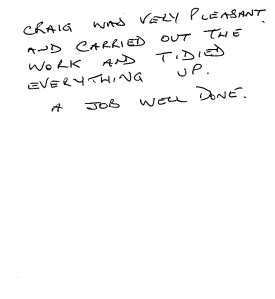 CRAIG WAS VERY PLEASANT.
AND CARRIED OUT THE
WORK AND TIDIED
EVERYTHING UP.
A JOB WELL DONE.